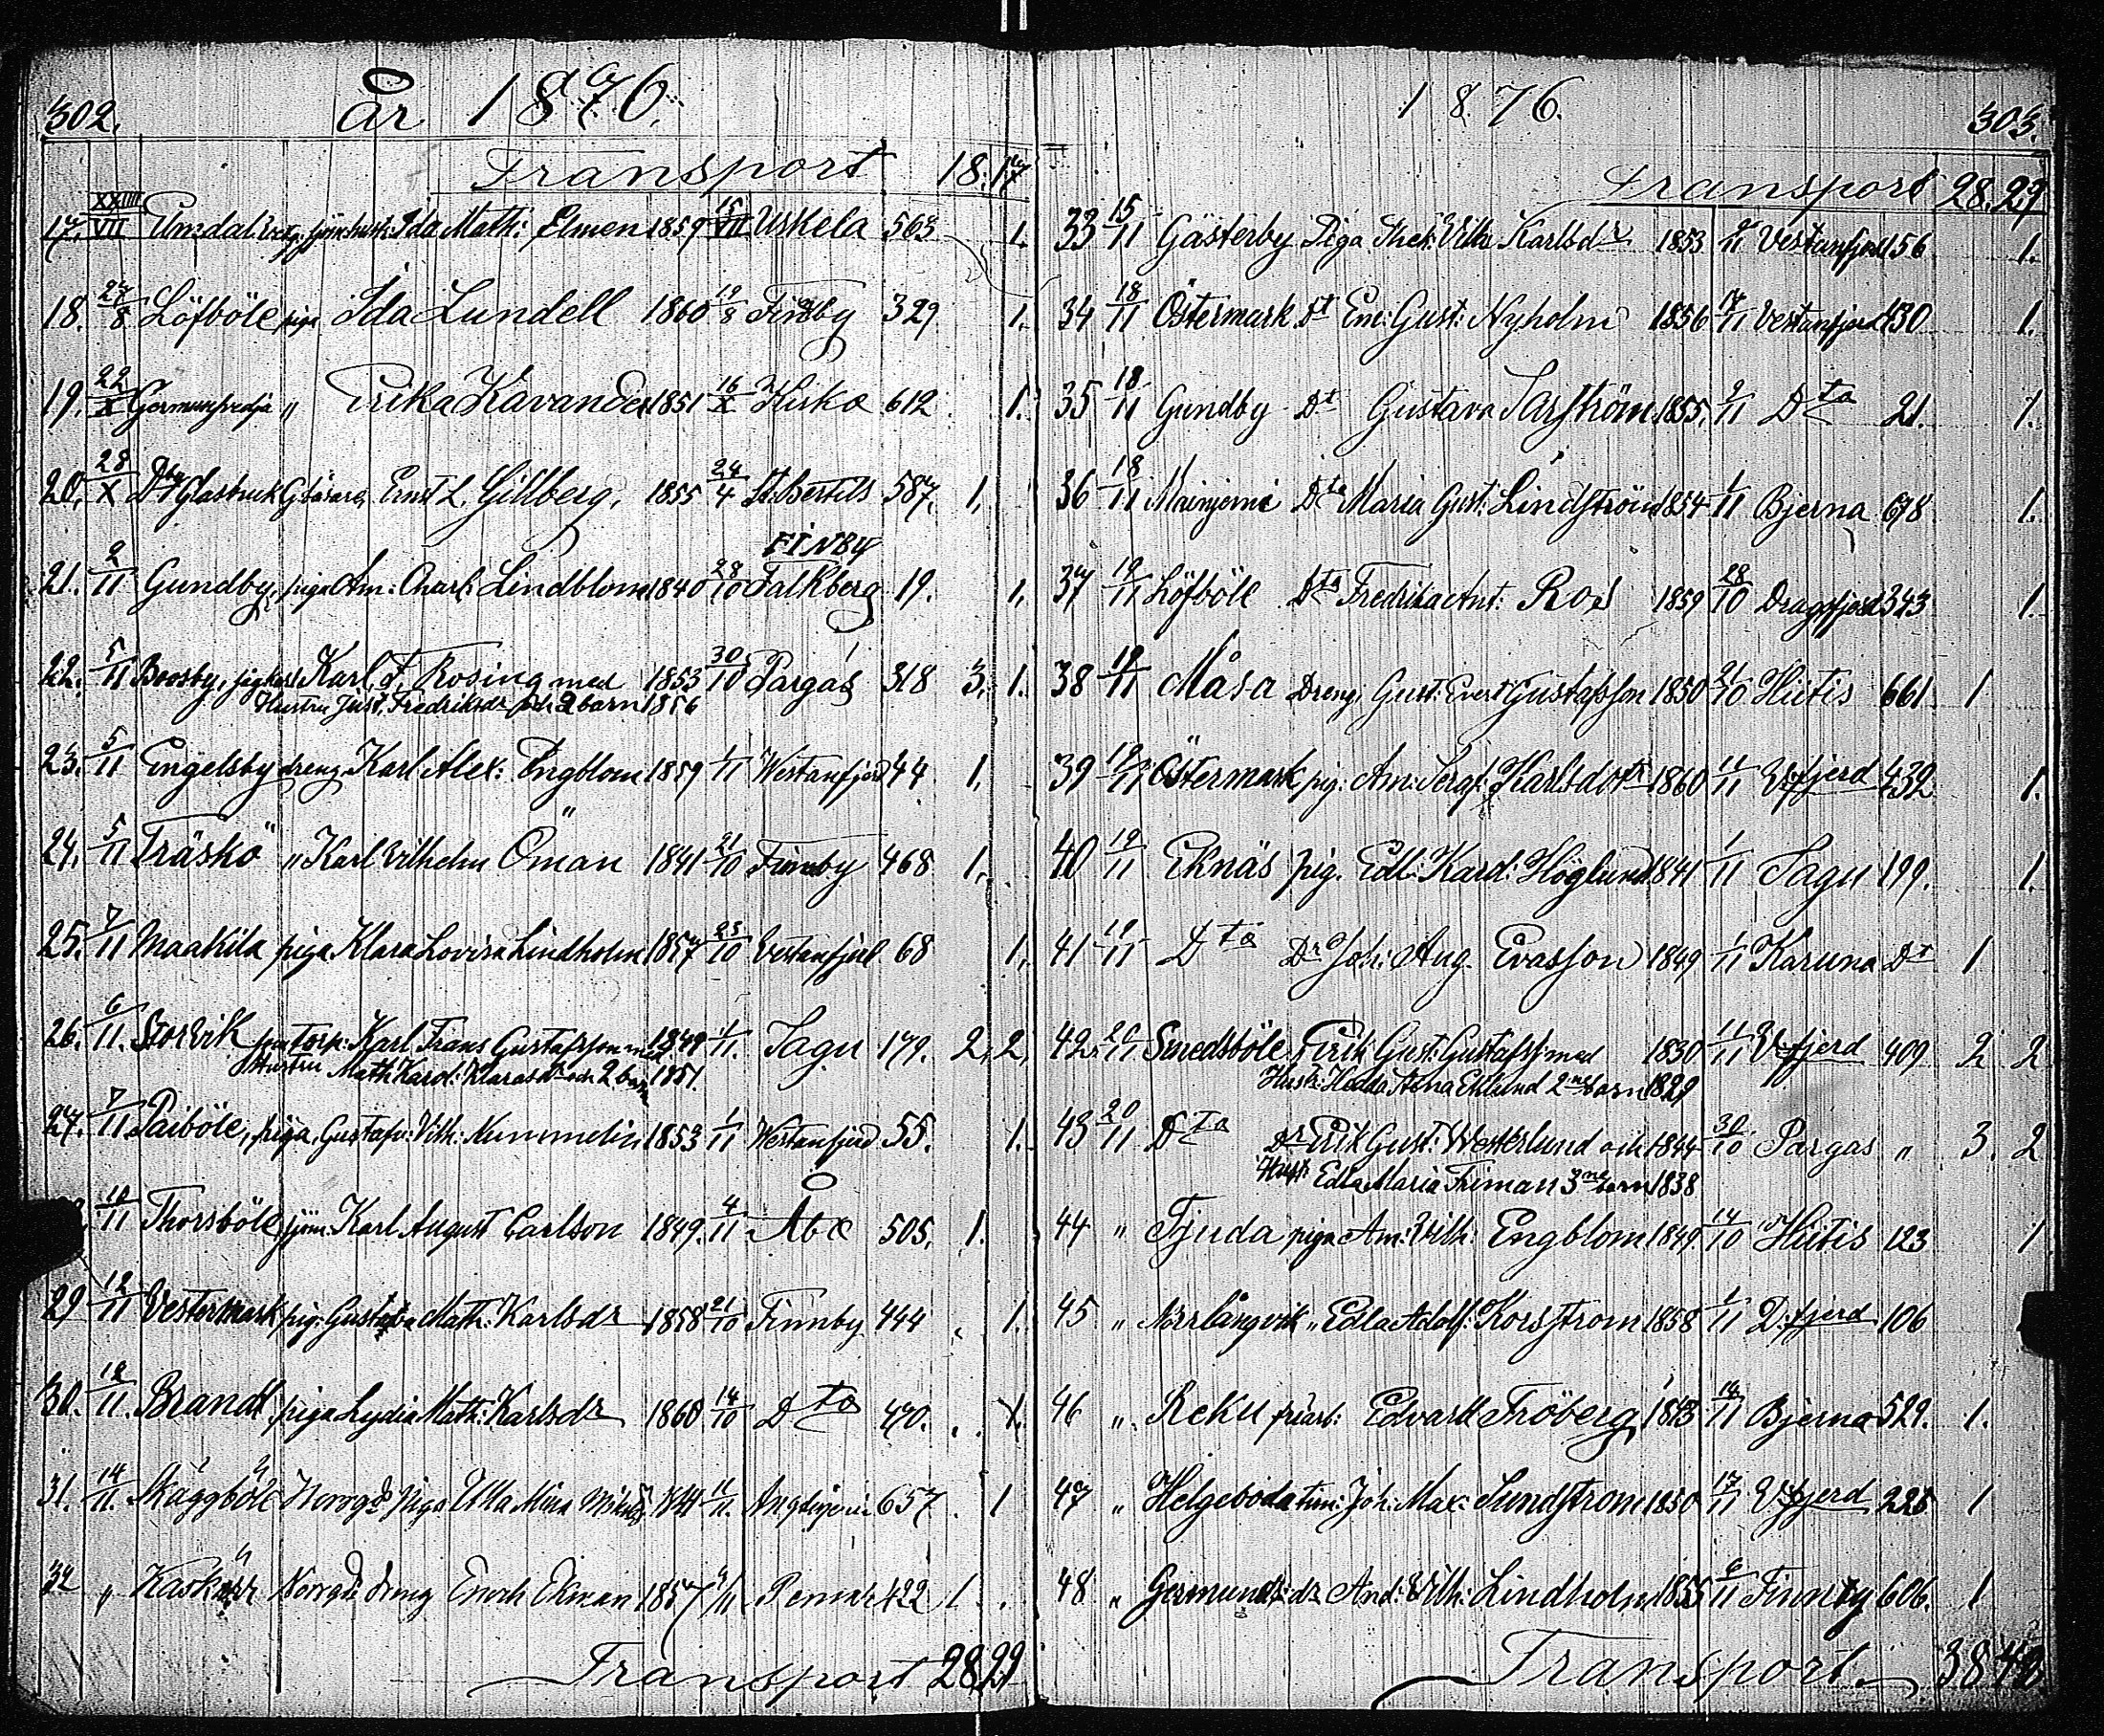 302. År 1876.
Transport 18. 17
17. XXIIII/VII Ida Math: Elmen 1859 15/VII Uskela 563 1.
18. 27/8 Löfböle piga Ida Lundell 1860 19/8 Finby 329 1.
19. 22/X " Erika Kavander 1851 16/X Kisko 612 1.
20. 28/X Dto Glasbruk Ernst L. Gillberg, 1855 24/4 St. Bertils 587. 1,
FINBY
21. 2/11 Gundby, piga Am: Charl: Lindblom 1840 28/10 Falkberg 19. 1,
22. 5/11 Boosby, Karl F. Rosing med 1853 30/10 Pargas 318 3, 1.
Hustru Just. Fredriksdr och 2 barn 1856
23. 5/11 Engelsby dreng Karl Alex: Engblom 1859 1/11 Westanfjerd 44 1,
24. 5/11 Träskö " Karl Vilhelm Öman 1841 21/10 Finnby 468 1,
25. 7/11 Maakila piga Klara Lovisa Lindholm 1857 23/10 Vestanfjerd 68 1,
26. 6/11. Storvik torp: Karl Frans Gustafsson med 1849 1/11. Sagu 179. 2, 2,
Hustru Math Karol: Klarasdr och 2 barn 1851.
27. 7/11 Paiböle, piga, Gustafv: Vilh: Nummelin 1853 1/11 Westanfjerd 55. 1.
10/11 Thorsböle sjöm: Karl August Carlson 1849. 4/11 Åbo 505. 1.
29 12/11 Vestermark pig: Gustava Math: Karlsdr 1858 21/10 Finnby 444 1.
30. 12/11. Brandt piga Lydia Math: Karlsdr 1860 14/10 Dto 470. 1.
31. 14/11. Skäggböle piga Ulla Mina 11/11. 657 1
32 " Kaskärr dreng Enoch Ekman 1857 9/11 Pemar 422 1
Transport 28, 29
1876. 303.
Transport 28. 29
33 15/11 Gästerby Piga Vilh: Karlsdr 1853 Vestanfjerd 156 1.
34 18/11 Östermark Dt Em: Gust: Nyholm 1856 17/11 Vestanfjerd 430 1.
35 18/11 Gundby Dt Gustava 1855. 9/11 Dta 21. 1.
36 18/11 Dta Maria Gust: Lindström 1854 1/11 Bjerna 678 1.
37 19/11 Löfböle Dta Fredrika Ant: Ros 1859 28/10 Dragsfjerd 343 1
38 19/11 Måsa Dreng, Gust: Evert Gustafsson 1850 21/10 Hiitis 661 1
39 19/11 Östermark pig: Am: Seraf: Karlsdotr 1860 11/11 Vfjerd 432 1.
40 19/11 Eknäs pig. Edl: Karol: Höglund 1841 1/11 Sagu 199. 1.
41 19/11 Dta Dr Joh: Aug. Evasson 1849 1/11 Karuna Dt 1
42. 20/11 Smedsböle Erik Gust: Gustafss: med 1830 11/11 Vfjerd 409 2 2
Hust: Hedda Anna Eklund 2ne barn 1829
43 20/11 Dta Dr Erik Gust: Westerlund och 1844 30/10 Pargas " 3. 2
Hust: Edla Maria Friman 3ne barn 1838
44 " Tjuda piga Am: Vilh: Engblom 1849 14/10 Hiitis 123 1
45 " Norrlångvik " Edla Adolf: Korsström 1858 1/11 D:fjerd 106
46 " Reku Edvard Fröberg 14/11 Bjerna 529. 1.
47 " Helgeboda tim: Joh: Max: Sundström 1850 17/11 Vfjerd 226 1
48 " dr And: Vilh: Lindholm 1855 6/11 Finnby 606. 1
Transport. 38 42